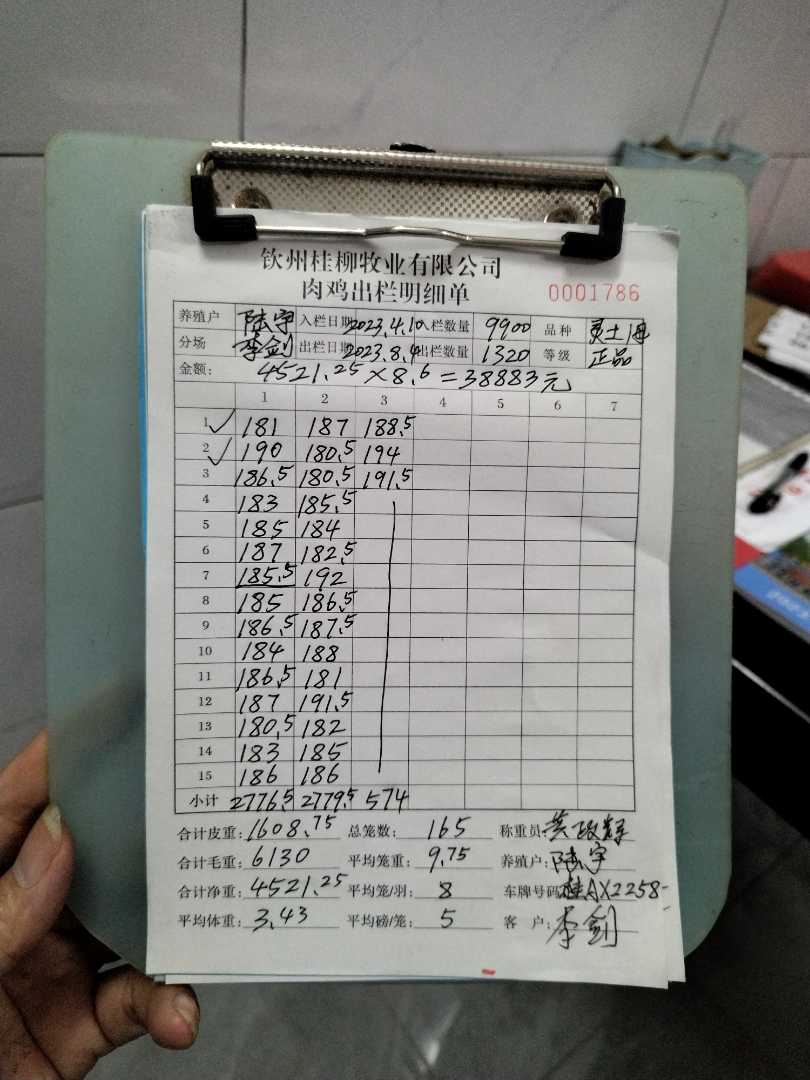 钦州桂柳牧业有限公司
肉鸡出栏明细单 0001786
养殖户 陆宇 入栏日期 2023.4.10 入栏数量 9900 品种 灵土
分场 李剑 出栏日期 2023.8.4 出栏数量 1320 等级 正品
金额: 4521.25×8.6=38883元
1 2 3 4 5 6 7
1 ✓ 181 187 188.5
2 ✓ 190 180.5 194
3 186.5 180.5 191.5
4 183 185.5
5 185 184
6 187 182.5
7 185.5 192
8 185 186.5
9 186.5 187.5
10 184 188
11 186.5 181
12 187 191.5
13 180.5 182
14 183 185
15 186 186
小计 2776.5 2779.5 574
合计皮重: 1608.75 总笼数: 165 称重员: 黄政辉
合计毛重: 6130 平均笼重: 9.75 养殖户: 陆宇
合计净重: 4521.25 平均笼/羽: 8 车牌号码: 桂AX2258
平均体重: 3.43 平均磅/笼: 5 客 户: 李剑